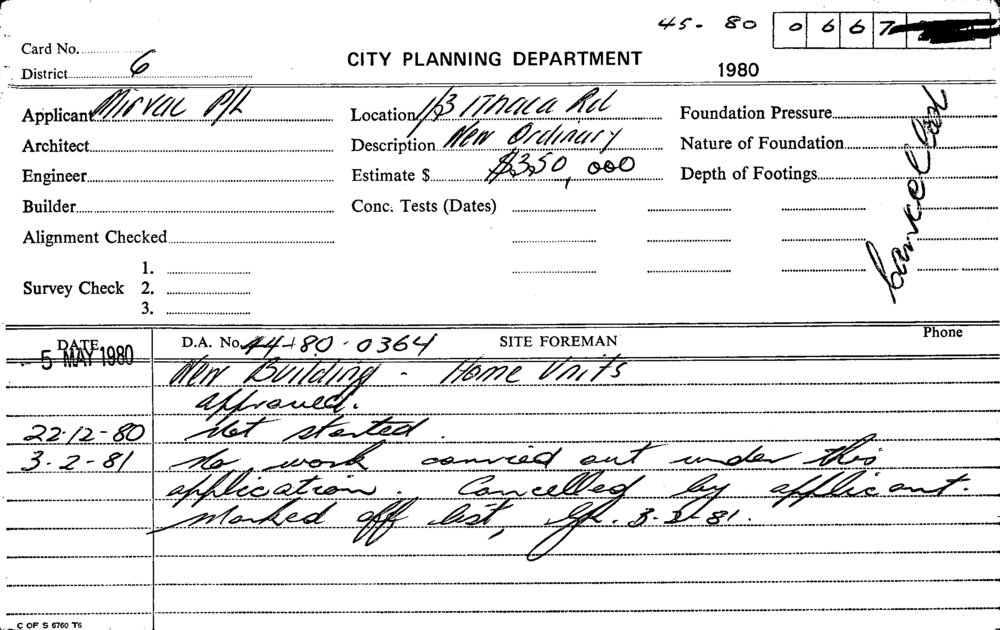 45- 80 0667
Card No.
District 6
CITY PLANNING DEPARTMENT
1980
Applicant Mirvac P/L
Location 1/3 Ithaca Rd
Foundation Pressure
Architect
Description New Ordinary
Nature of Foundation
Engineer
Estimate $ $350,000
Depth of Footings
Builder
Conc. Tests (Dates)
Cancelled
Alignment Checked
1.
Survey Check 2.
3.
DATE D.A. No. 44-80-0364 SITE FOREMAN Phone
5 MAY 1980
New Building - Home Units
approved.
22-12-80 Not started.
3-2-81 No work carried out under this
application. Cancelled by applicant.
Marked off list, 3-2-81.
C OF S 6760 T6